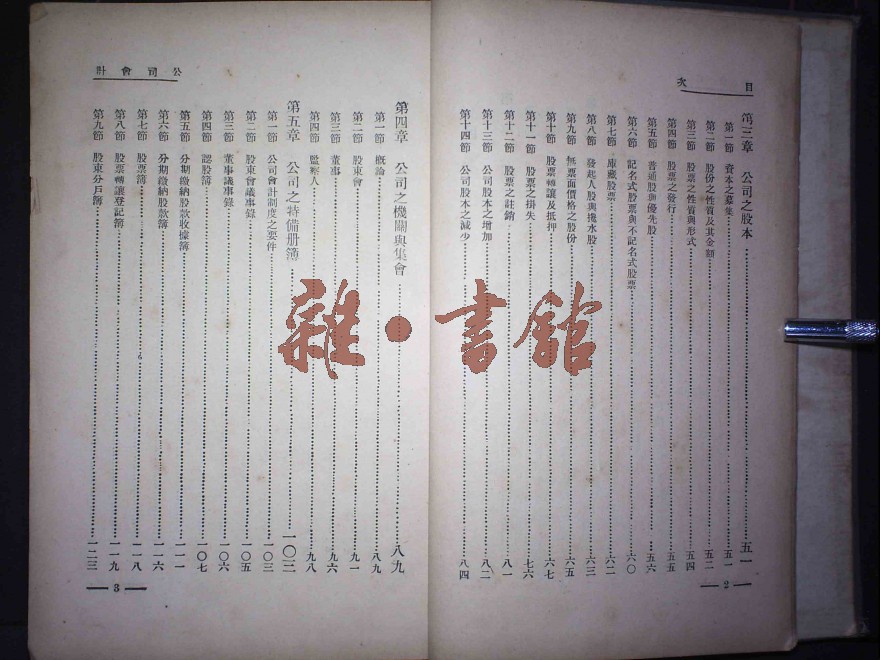 目次
第三章 公司之股本 五一
第一節 資本之募集 五一
第二節 股份之性質及其金額 五二
第三節 股票之性質與形式 五四
第四節 股票之發行 五五
第五節 普通股與優先股 五六
第六節 記名式股票與不記名式股票 六〇
第七節 庫藏股票 六二
第八節 發起人股與攙水股 六三
第九節 無票面價格之股份 六五
第十節 股票轉讓及抵押 六七
第十一節 股票之掛失 七六
第十二節 股票之註銷 八一
第十三節 公司股本之增加 八二
第十四節 公司股本之減少 八四
2
公司會計
第四章 公司之機關與集會 八九
第一節 概論 八九
第二節 股東會 九一
第三節 董事 九六
第四節 監察人 九八
第五章 公司之特備册簿 一〇三
第一節 公司會計制度之要件 一〇三
第二節 股東會議事錄 一〇五
第三節 董事議事錄 一〇六
第四節 認股簿 一〇七
第五節 分期繳納股款收據簿 一一一
第六節 分期繳納股款簿 一一六
第七節 股票簿 一一八
第八節 股票轉讓登記簿 一一九
第九節 股東分戶簿 一二三
3
雜·書館